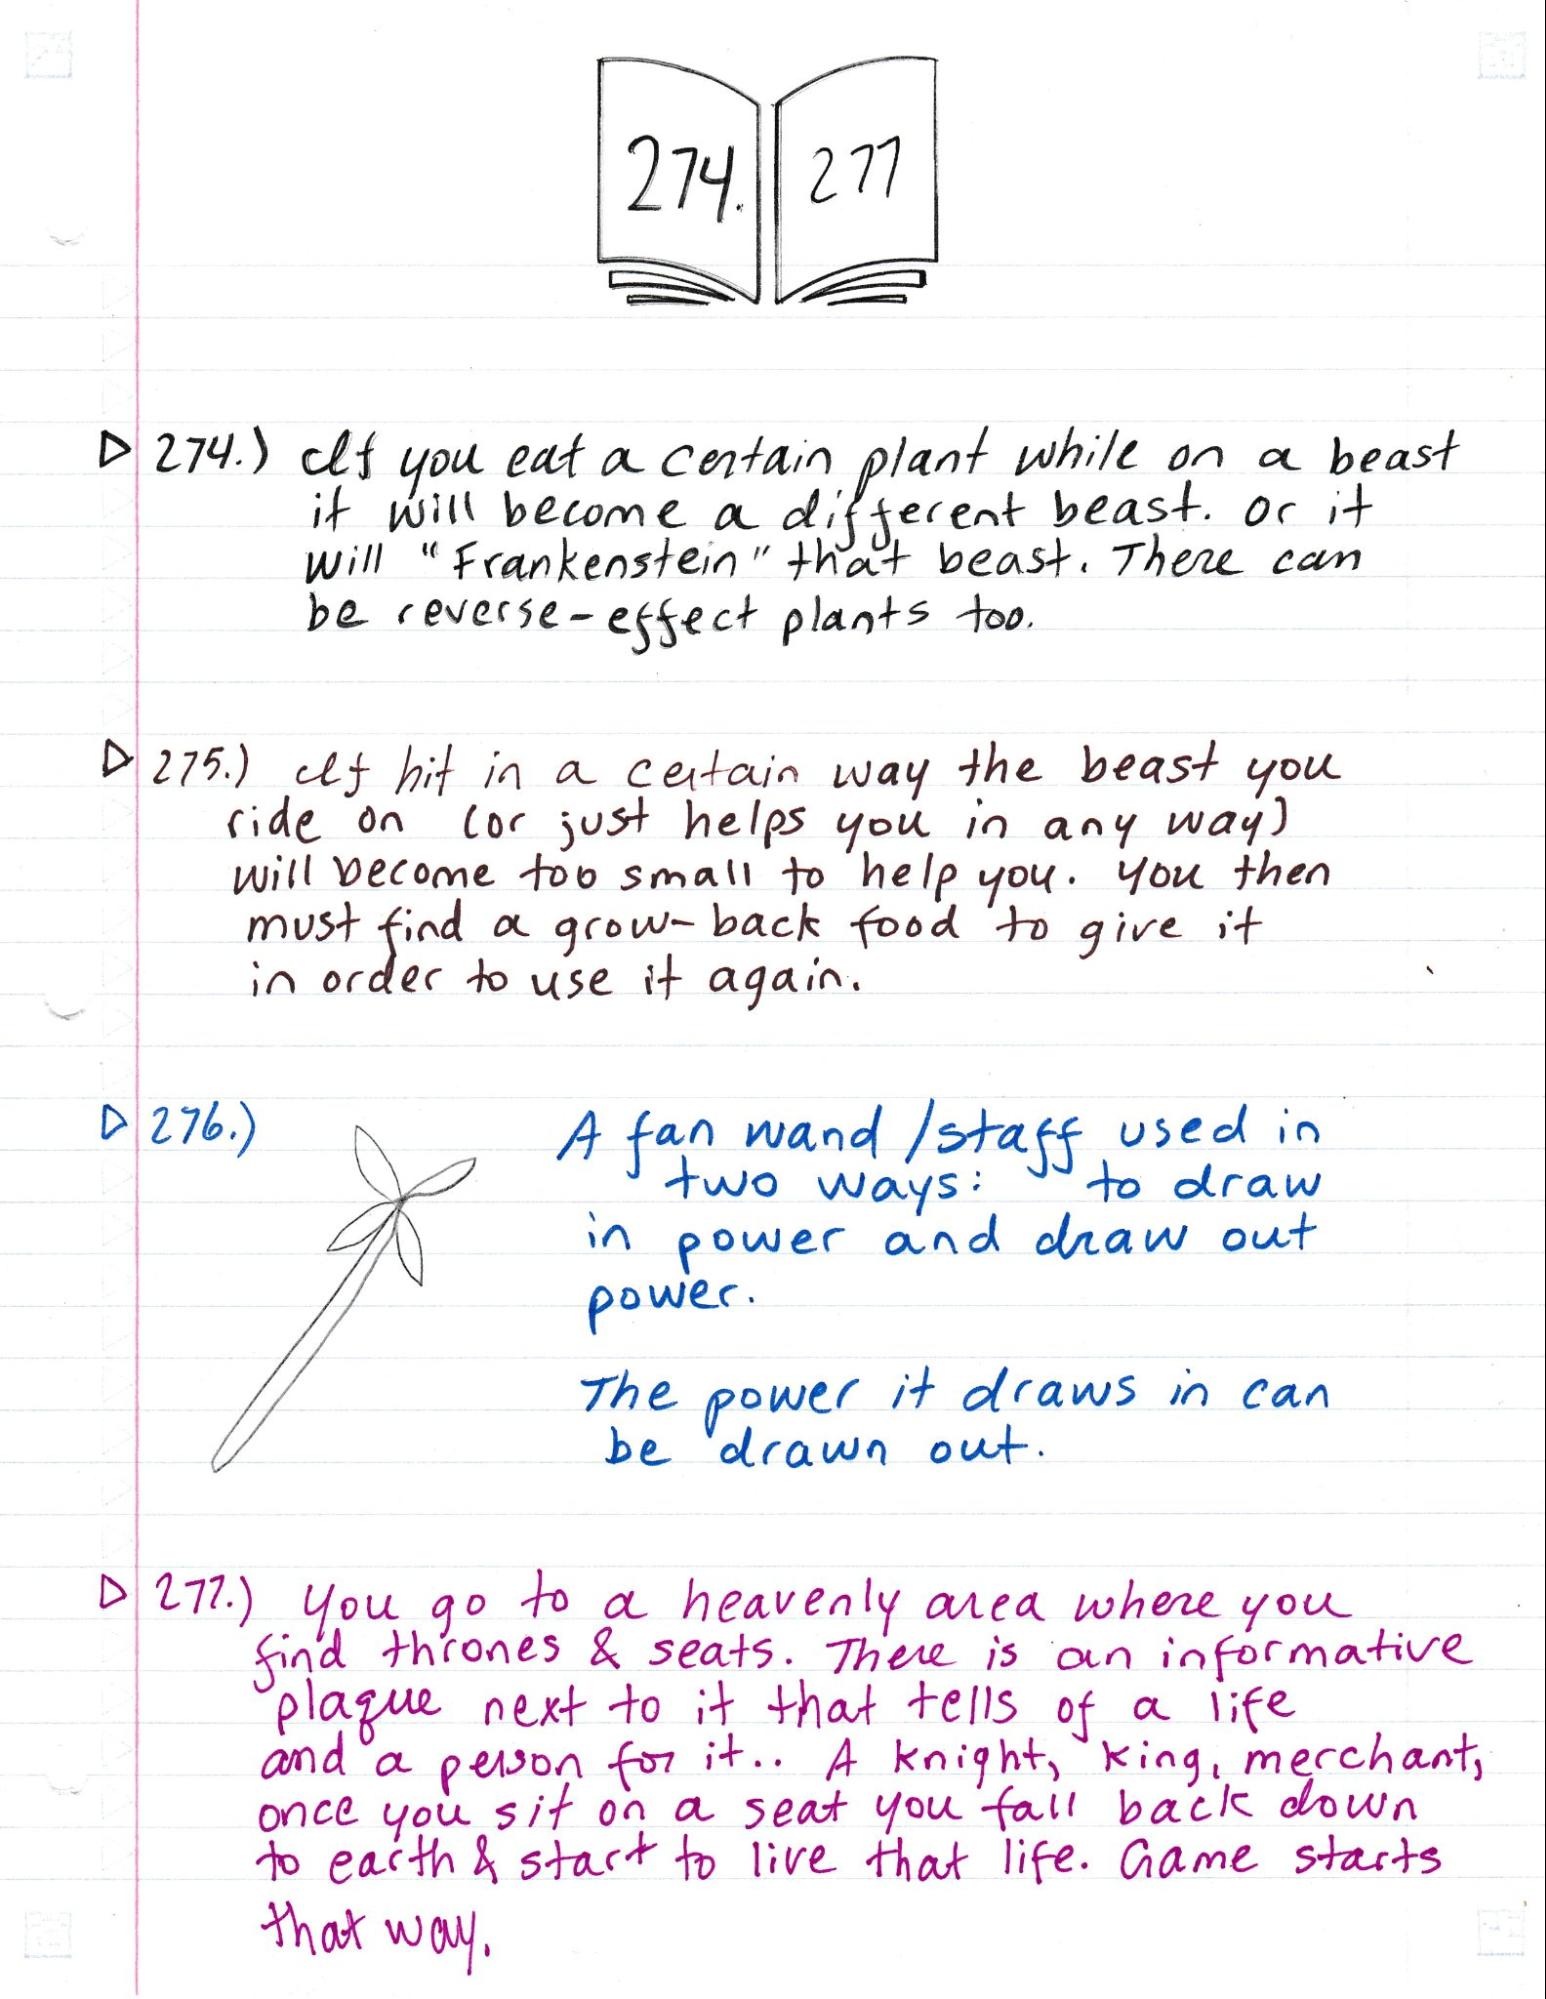 274. 277
274.) If you eat a certain plant while on a beast
it will become a different beast. Or it
will "Frankenstein" that beast. There can
be reverse-effect plants too.
275.) If hit in a certain way the beast you
ride on (or just helps you in any way)
will become too small to help you. You then
must find a grow-back food to give it
in order to use it again.
276.)
A fan wand /staff used in
two ways: to draw
in power and draw out
power.
The power it draws in can
be drawn out.
277.) You go to a heavenly area where you
find thrones & seats. There is an informative
plaque next to it that tells of a life
and a person for it.. A knight, king, merchant,
once you sit on a seat you fall back down
to earth & start to live that life. Game starts
that way.